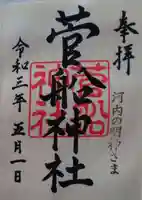 奉拝
河内の明神さま
菅船神社
令和三年五月一日